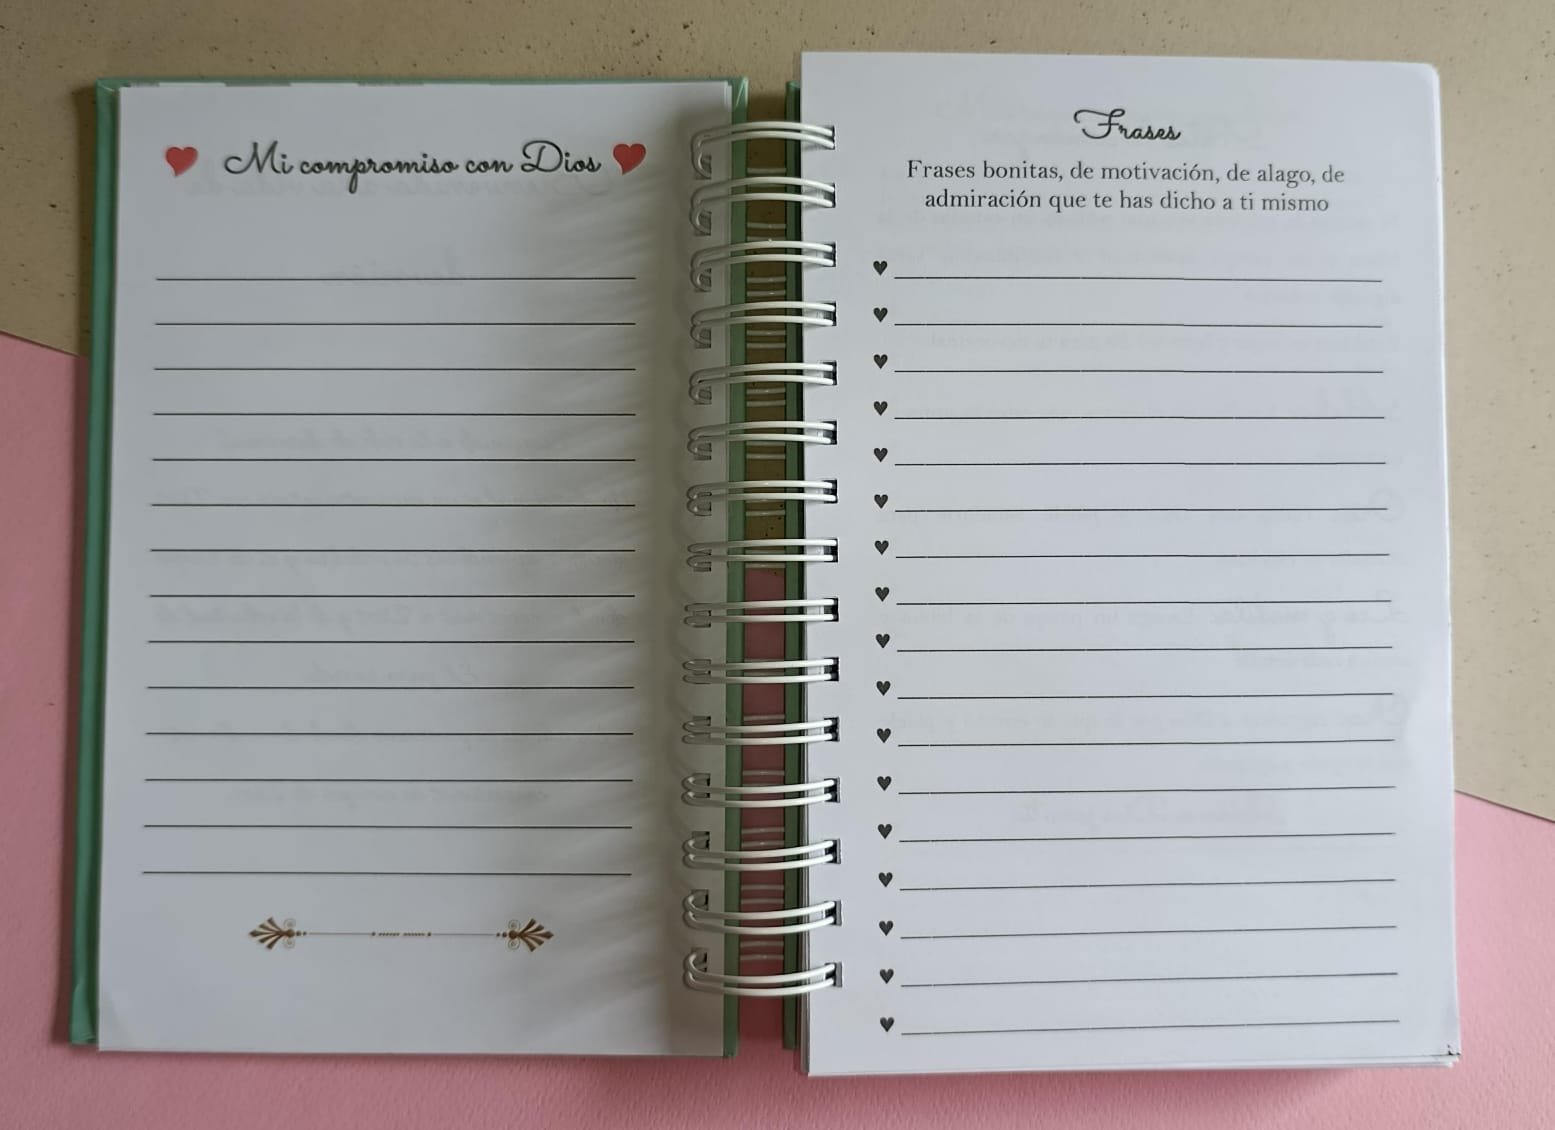 Mi compromiso con Dios
Frases
Frases bonitas, de motivación, de alago, de
admiración que te has dicho a ti mismo